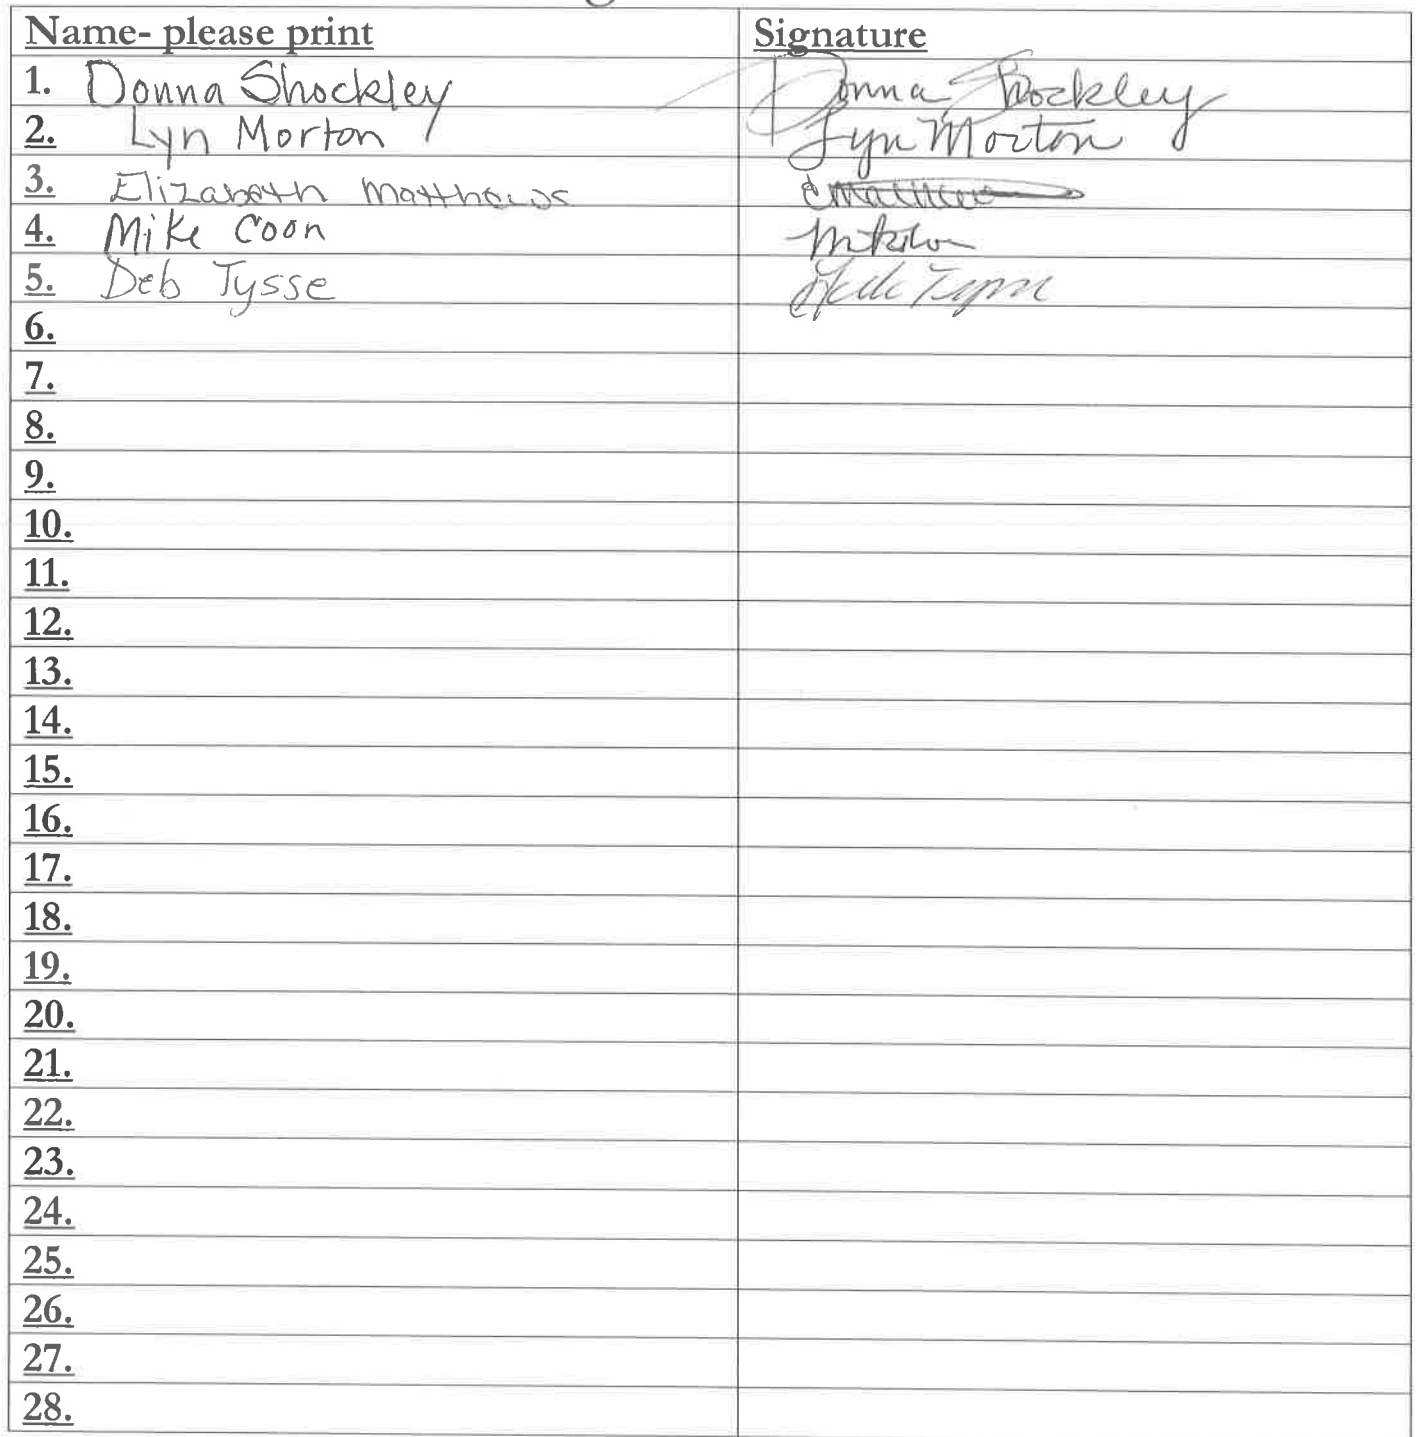 Name- please print Signature
1. Donna Shockley Donna Shockley
2. Lyn Morton Lyn Morton
3. Elizabeth Matthews
4. Mike Coon
5. Deb Tysse
6.
7.
8.
9.
10.
11.
12.
13.
14.
15.
16.
17.
18.
19.
20.
21.
22.
23.
24.
25.
26.
27.
28.